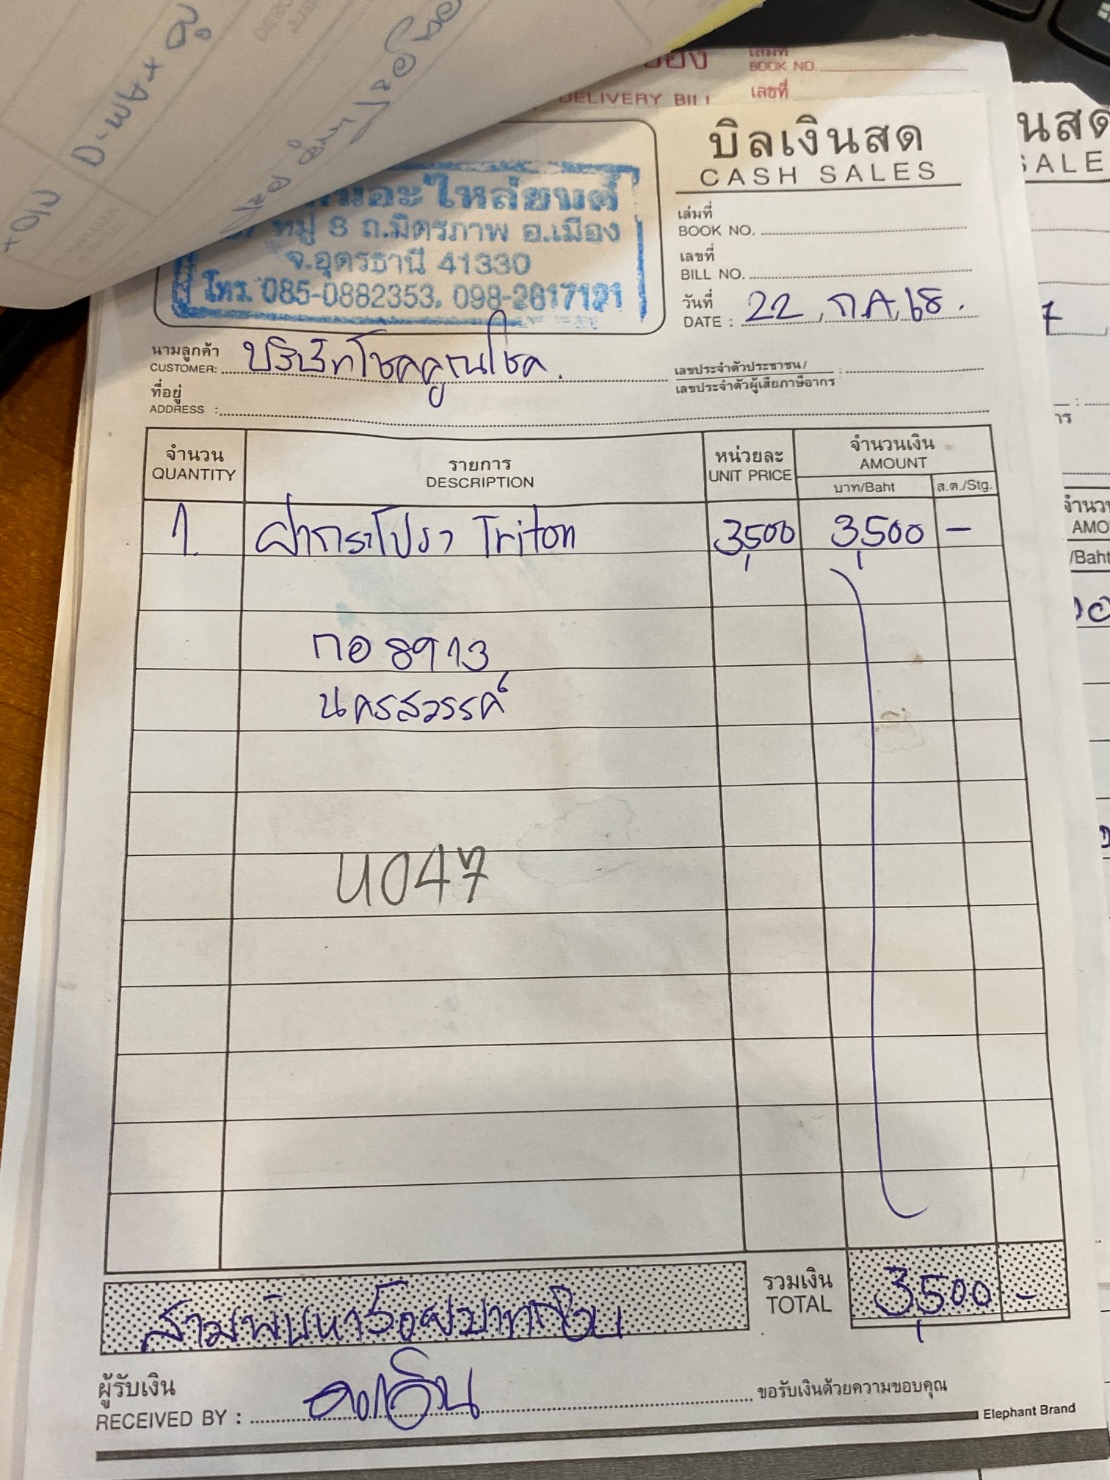 BOOK NO.
DELIVERY BILL เลขที่
บิลเงินสด
CASH SALES
อะไหล่ยนต์
หมู่ 8 ถ.มิตรภาพ อ.เมือง
จ.อุดรธานี 41330
โทร. 085-0882353, 098-2817121
เล่มที่
BOOK NO.
เลขที่
BILL NO.
วันที่
DATE : 22 ก.ค. 68.
นามลูกค้า
CUSTOMER: บริษัทโชคคูณโชค.
เลขประจำตัวประชาชน/
เลขประจำตัวผู้เสียภาษีอากร :
ที่อยู่
ADDRESS :
จำนวน รายการ หน่วยละ จำนวนเงิน
QUANTITY DESCRIPTION UNIT PRICE AMOUNT
บาท/Baht ส.ต./Stg.
1. ฝากระโปรง Triton 3,500 3,500 -
กอ 8913
นครสวรรค์
U047
สามพันห้าร้อยบาทถ้วน
รวมเงิน
TOTAL 3,500 -
ผู้รับเงิน
RECEIVED BY :
ขอรับเงินด้วยความขอบคุณ
Elephant Brand